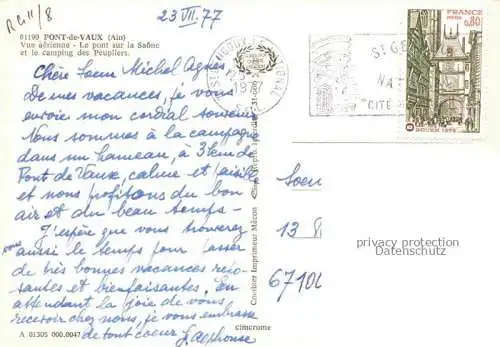 R 4 11/8
23 VII 77
01190 PONT-de-VAUX (Ain)
Vue aérienne - Le pont sur la Saône
et le camping des Peupliers.
Chère Soeur Michel Agnès
De mes vacances, je vous
envoie mon cordial souvenir
Nous sommes à la campagne
dans un hameau, à 3 km de
Pont de Vaux, calme et paisible
et nous profitons du bon
air et du beau temps -
J'espère que vous trouverez
aussi le temps pour passer
de très bonnes vacances repo-
santes et bienfaisantes. En
attendant la joie de vous
recevoir chez nous, je vous embrasse
de tout coeur J. Alphonse
A 01305 000.0047
cimcrome
Combier Imprimeur Mâcon
ST GE
NAT
"CITE
FRANCE
POSTES
0,80
Soeu
13 R
6710
privacy protection
Datenschutz